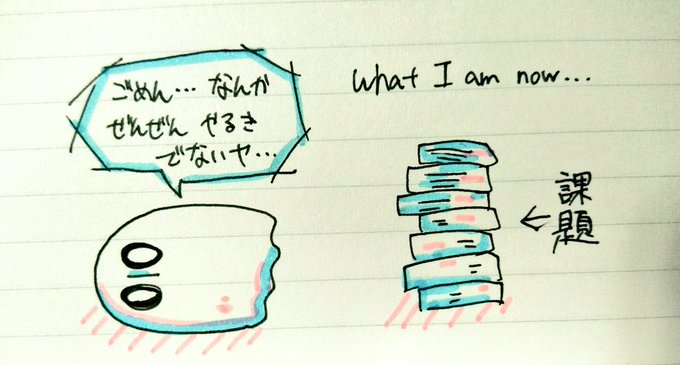 ごめん… なんか
ぜんぜん やるき
でないヤ…
What I am now...
←課題